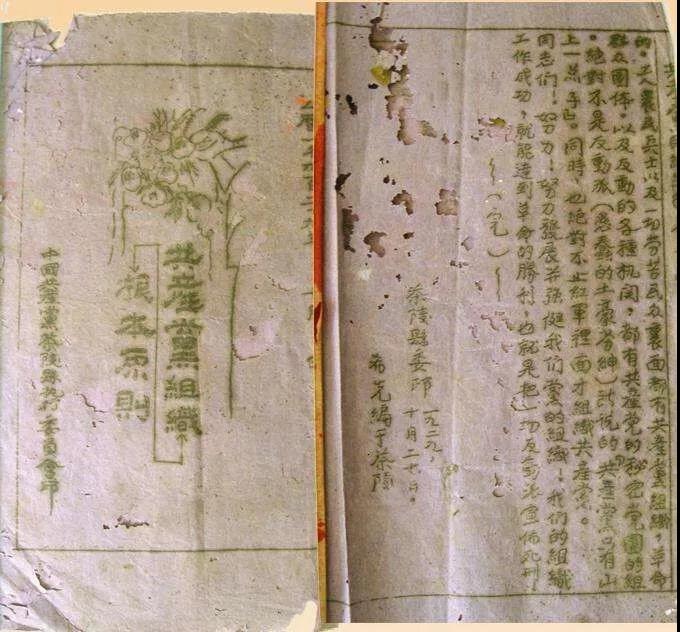 共產黨組織
根本原則
中國共產黨茶陵縣執行委員會印
的。工人農民兵士以及一切勞苦民众裏面都有共產黨組織，革命
群众團体，以及反動的各種机関，都有共產党的秘密党團的組
。絕對不是反動派（愚蠢的土豪劣紳）所說的共產黨只有山
上一點子』。同時，也絕對不止紅軍裡面才組織共產黨。
同志们！努力！努力發展並强健我們黨的組織！我們的組織
工作成功，就能達到革命的勝利，也就是把一切反動派宣佈死刑！
（完）
茶陵縣委印 一九二九，十月二十日。
希先編于茶陵